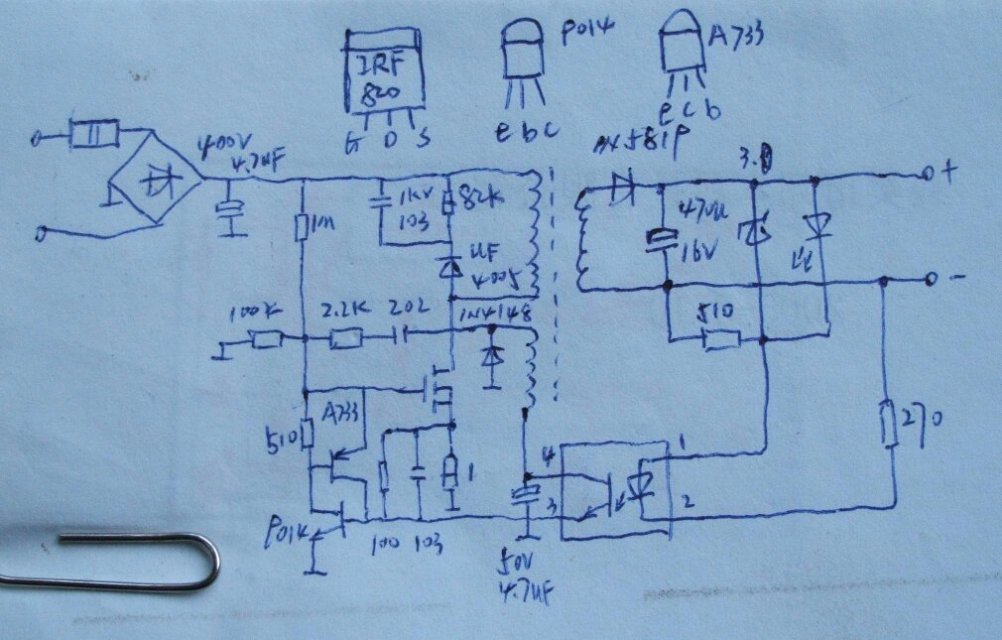 IRF
820
G D S
P014
e b c
A733
e c b
400V
4.7uF
1M
1KV
103
82K
UF
4005
100K
2.2K
202
1N4148
510
A733
P014
100
103
1
50V
4.7uF
4
3
1
2
470u
16V
510
270
+
-